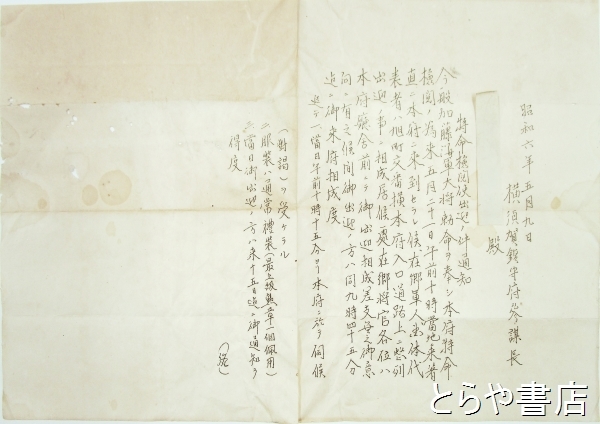 昭和六年五月九日
横須賀鎮守府参謀長
殿
特命検閲使出迎ノ件通知
今般加藤海軍大将勅命ヲ奉シ本府特命
検閲ノ為来五月二十一日午前十時當地来着
直ニ本府ニ来到セラレ候ニ在郷軍人団体代
表者ハ旭町交番横本府入口道路上ニ整列
出迎ノ事ニ相成居候處在郷将官各位ハ
本府廳舎前ニテ御出迎相成差支無之御意
向ノ有之候間御出迎ノ方ハ同九時四十五分
迄ニ御来府相成度
追テ一當日午前十時十五分ヨリ本府ニ於テ伺候
(拝謁)ヲ受ケラル
二服装ハ通常禮装(最上級勲章一個佩用)
三當日御出迎ノ方ハ来十五日迄ニ御通知ヲ
得度
(終)
とらや書店